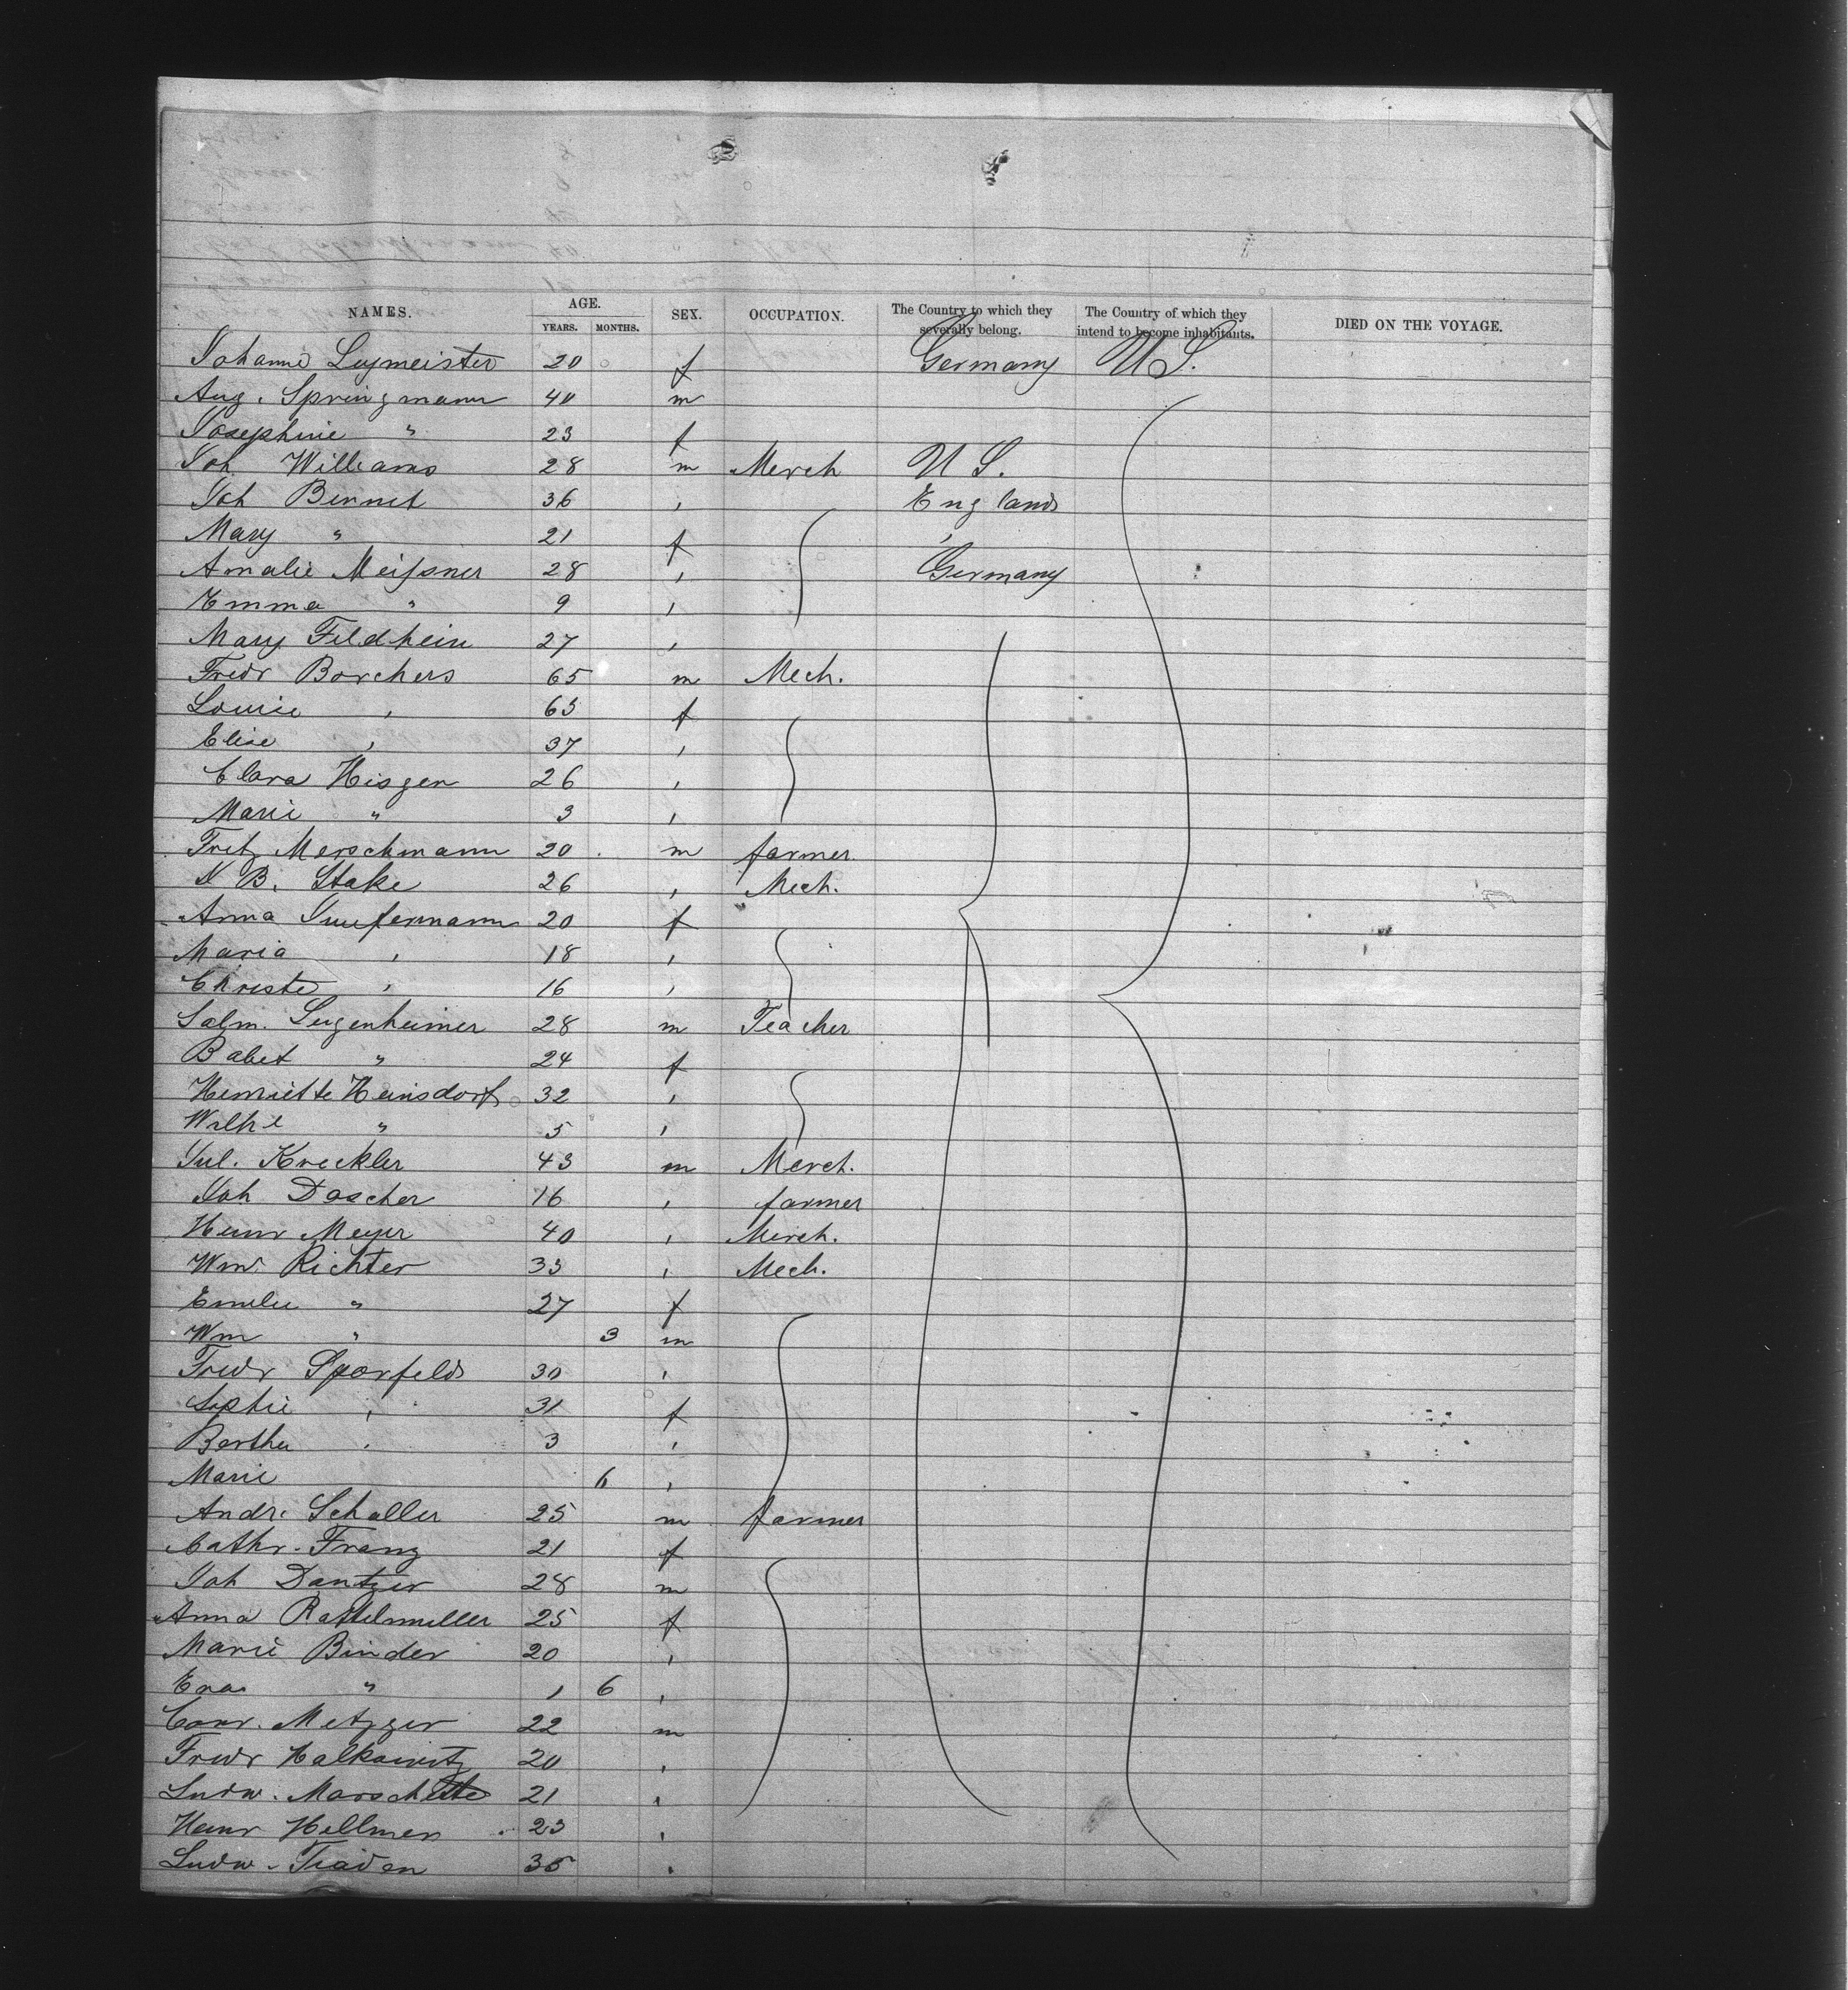 NAMES. AGE. YEARS. MONTHS. SEX. OCCUPATION. The Country to which they severally belong. The Country of which they intend to become inhabitants. DIED ON THE VOYAGE.
Johanne Luymeister 20 f Germany U S.
Aug. Springmann 40 m
Josephine " 23 f
Joh. Williams 28 m Merch U S.
Joh Bennet 36 , England
Mary " 21 f ,
Amalie Meißner 28 , Germany
Emma " 9 ,
Mary Feldhein 27 ,
Fredr Borchers 65 m Mech.
Louise , 63 f
Elise , 37 ,
Clara Hisgen 26 ,
Marie " 3 ,
Fritz Merschmann 20 m farmer
N B. Stake 26 , Mech.
Anna 20 f
Maria , 18 ,
Christe , 16 ,
Salm. Sugenheimer 28 m Teacher
Babet " 24 f
Henriette Heinsdorf 32 ,
Wilhe " 5 ,
Jul. Kreckler 43 m Merch.
Joh Doscher 16 , farmer
Heinr Meyer 40 , Merch.
Wm. Richter 33 , Mech.
Emilie " 27 f
Wm " 3 m
Fredr Sporfeld 30 ,
Sophie , 31 f
Bertha , 3 ,
Marie 6 ,
Andr. Schaller 25 m farmer
Cathr. Franz 21 f
Joh Dantzer 28 m
Anna Rattelmuller 25 f
Marie Binder 20 ,
Eva " 1 6 ,
Conr. Metzger 22 m
Fredr Calkowitz 20 ,
Ludw. 21 ,
Heinr Hellmer 23 ,
Ludw. Tiaden 35 ,